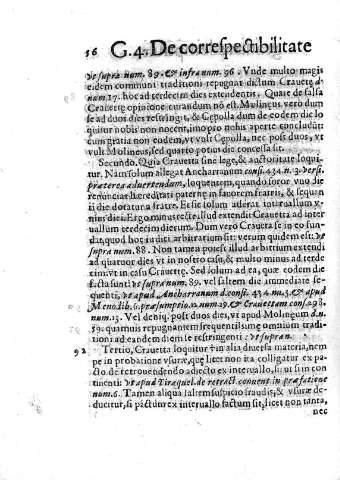 56 G.4. De correspectibilitate
vt supra num. 89. & infra num. 96. Vnde multo magis
eidem communi traditioni repugnat dictum Crauettę d.
num. 27. hoc ad terdecim dies extendentis. Quare de falsa
Crauettę opinione curandum nō est. Molinęus vero dum
se ad duos dies restringit, & Cępolla dum de eodem die lo
quitur nobis non nocent, immo nobis aperte concludūt
cum gratia non eadem, vt vult Cępolla, nec post duos, vt
vult Molineus, sed quarto potius die concessa sit.
Secundo. Quia Crauetta sine lege, & auctoritate loqui
tur. Nam solum allegat Ancharranum consi. 434. n. 3. versi.
præterea aduertendum, loquentem, quando soror vno die
renunciat hereditati paterne in fauorem fratris, & sequen
ti die dotatur a fratre. Et sic solum aderat interuallum v-
nius diei. Ergo minus recte illud extendit Crauetta ad inter
uallum terdecim dierum. Dum vero Crauetta se in eo fun-
dat, quod hoc iudici arbitrarium sit: verum quidem est: vt
supra num. 88. Non tamen potest illud arbitrium extendi
ad quatuor dies vt in nostro casu, & multo minus ad terde
cim vt in casu Crauettę. Sed solum ad ea, quæ eodem die
facta sunt: vt supra num. 89. vel saltem die immediate se-
quenti, vt apud Ancharranum d. consi. 434. nu. 3. & apud
Menoc. lib. 6. præsumptio. 12. num. 29. & Crauettam cons. 298.
num. 13. Vel deniq; post duos dies, vt apud Molinęum d. n.
59. quamuis repugnantem frequentissimę omnium tradi-
tioni ad eandem diem se restringenti: vt supra n.
92 Tertio, Crauetta loquitur † in alia diuersa materia, nem
pe in probatione vsuræ, que licet non ita colligatur ex pa-
cto de retrouendendo adiecto ex interuallo, si ut si in con
tinenti: vt apud Tiraquel. de retract. conuent. in præfatione
num. 6. Tamen aliqua saltem suspicio fraudis, & vsuræ de-
ducitur, si pactum ex interuallo factum sit, licet non tanta,
nec